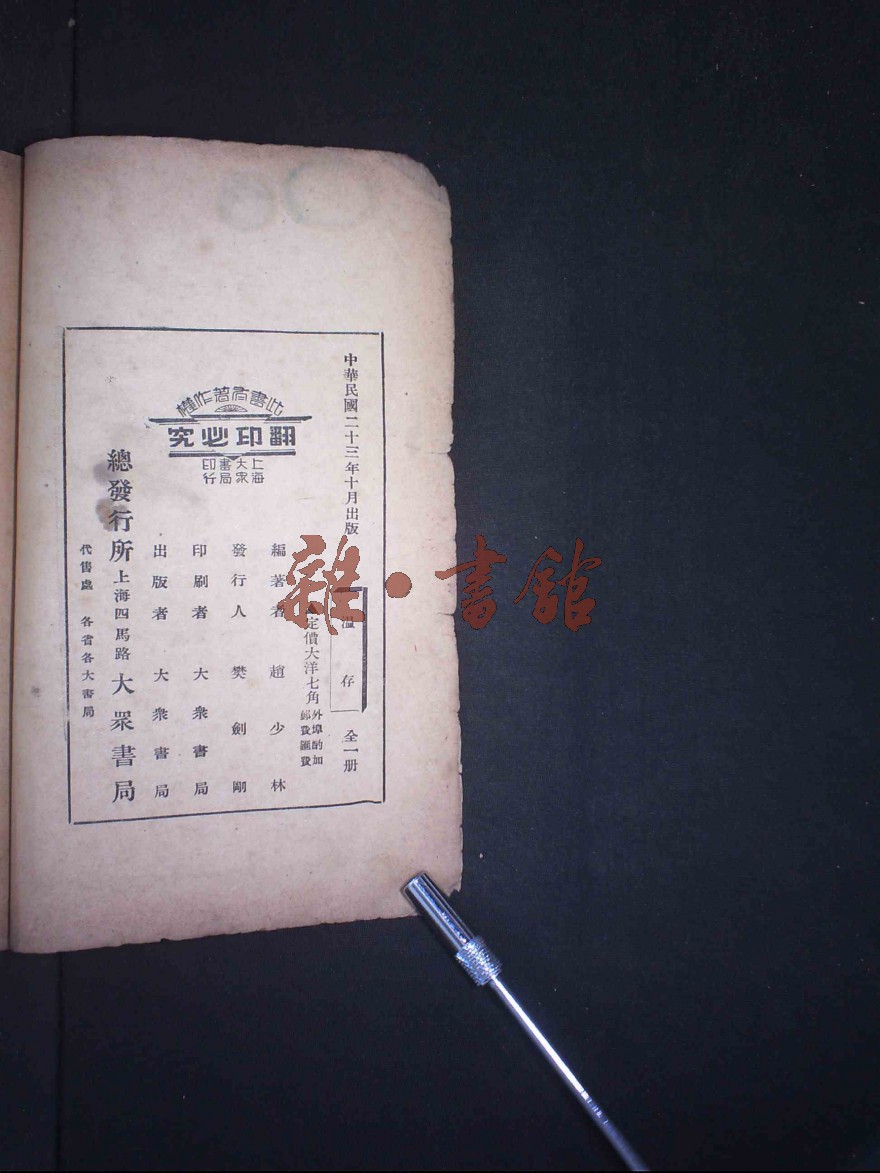 中華民國二十三年十月出版
溫存
全一册
定價大洋七角
外埠酌加
郵費匯費
編著者 趙少林
發行人 樊劍剛
印刷者 大衆書局
出版者 大衆書局
總發行所 上海四馬路 大眾書局
代售處 各省各大書局
此書有著作權
翻印必究
上海
大衆
書局
印行
雜·書館